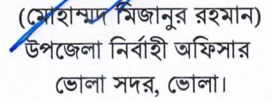 (মোহাম্মদ মিজানুর রহমান)
উপজেলা নির্বাহী অফিসার
ভোলা সদর, ভোলা।